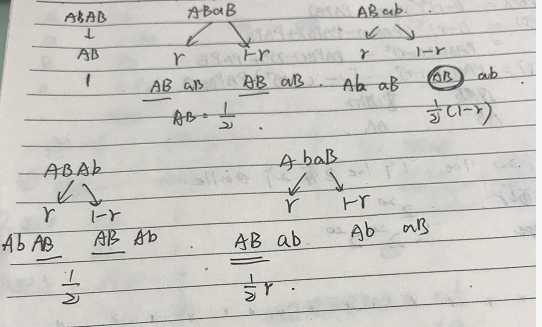 ABAB ABaB ABab
↓
AB r 1-r r 1-r
1 AB aB AB aB Ab aB AB ab
AB = 1/2 1/2(1-r)
ABAb AbaB
r 1-r r 1-r
Ab AB AB Ab AB ab Ab aB
1/2 1/2 r